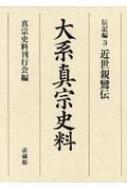 伝記編3
近世親鸞伝
大系真宗史料
真宗史料刊行会編
法藏館